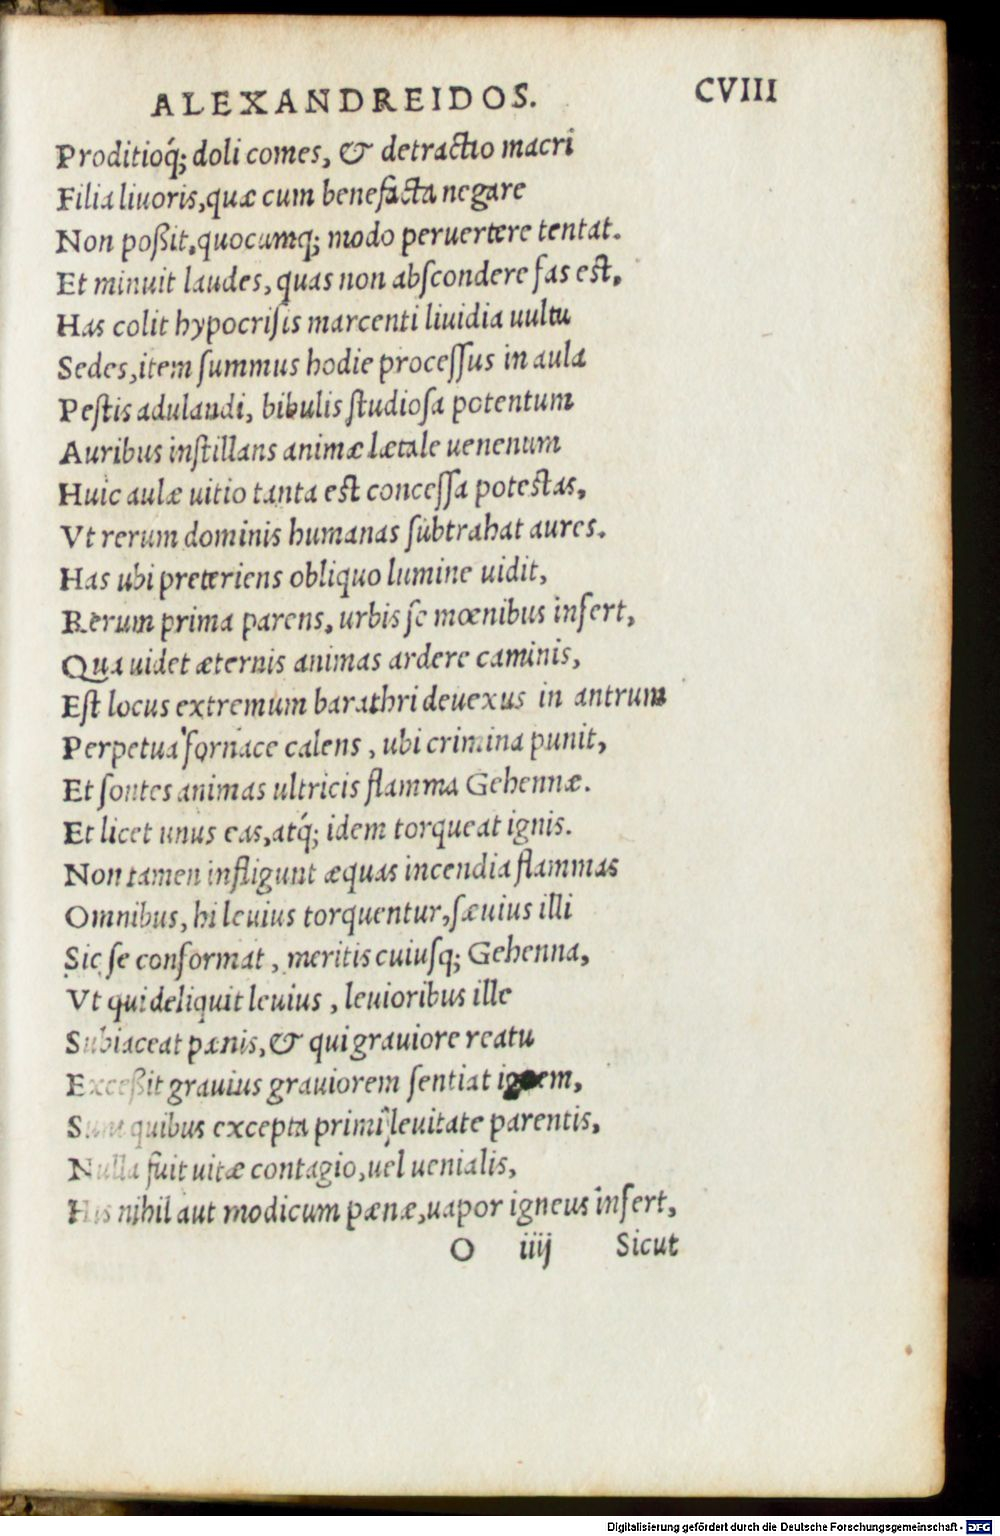 ALEXANDREIDOS. CVIII
Proditioq́; doli comes, & detractio macri
Filia liuoris,quæ cum benefacta negare
Non poßit,quocumq; modo peruertere tentat.
Et minuit laudes, quas non abſcondere fas est,
Has colit hypocriſis marcenti liuidia uultu
Sedes,item ſummus hodie proceſſus in aula
Peſtis adulandi, bibulis ſtudioſa potentum
Auribus inſtillans animæ lætale uenenum
Huic aulæ uitio tanta est conceſſa potestas,
Vt rerum dominis humanas ſubtrahat aures.
Has ubi preteriens obliquo lumine uidit,
Rerum prima parens, urbis ſe mœnibus inſert,
Qua uidet æternis animas ardere caminis,
Eſt locus extremum barathri deuexus in antrum
Perpetua fornace calens, ubi crimina punit,
Et ſontes animas ultricis flamma Gehennæ.
Et licet unus eas,atq́; idem torqueat ignis.
Non tamen infligunt æquas incendia flammas
Omnibus, hi leuius torquentur,ſæuius illi
Sic ſe conformat, meritis cuiuſq; Gehenna,
Vt qui deliquit leuius, leuioribus ille
Subiaceat pænis,& qui grauiore reatu
Exceßit grauius grauiorem ſentiat ignem,
Sunt quibus excepta primi leuitate parentis,
Nulla fuit uitæ contagio,uel uenialis,
His nihil aut modicum pænæ,uapor igneus inſert,
O iiij Sicut
Digitalisierung gefördert durch die Deutsche Forschungsgemeinschaft - DFG